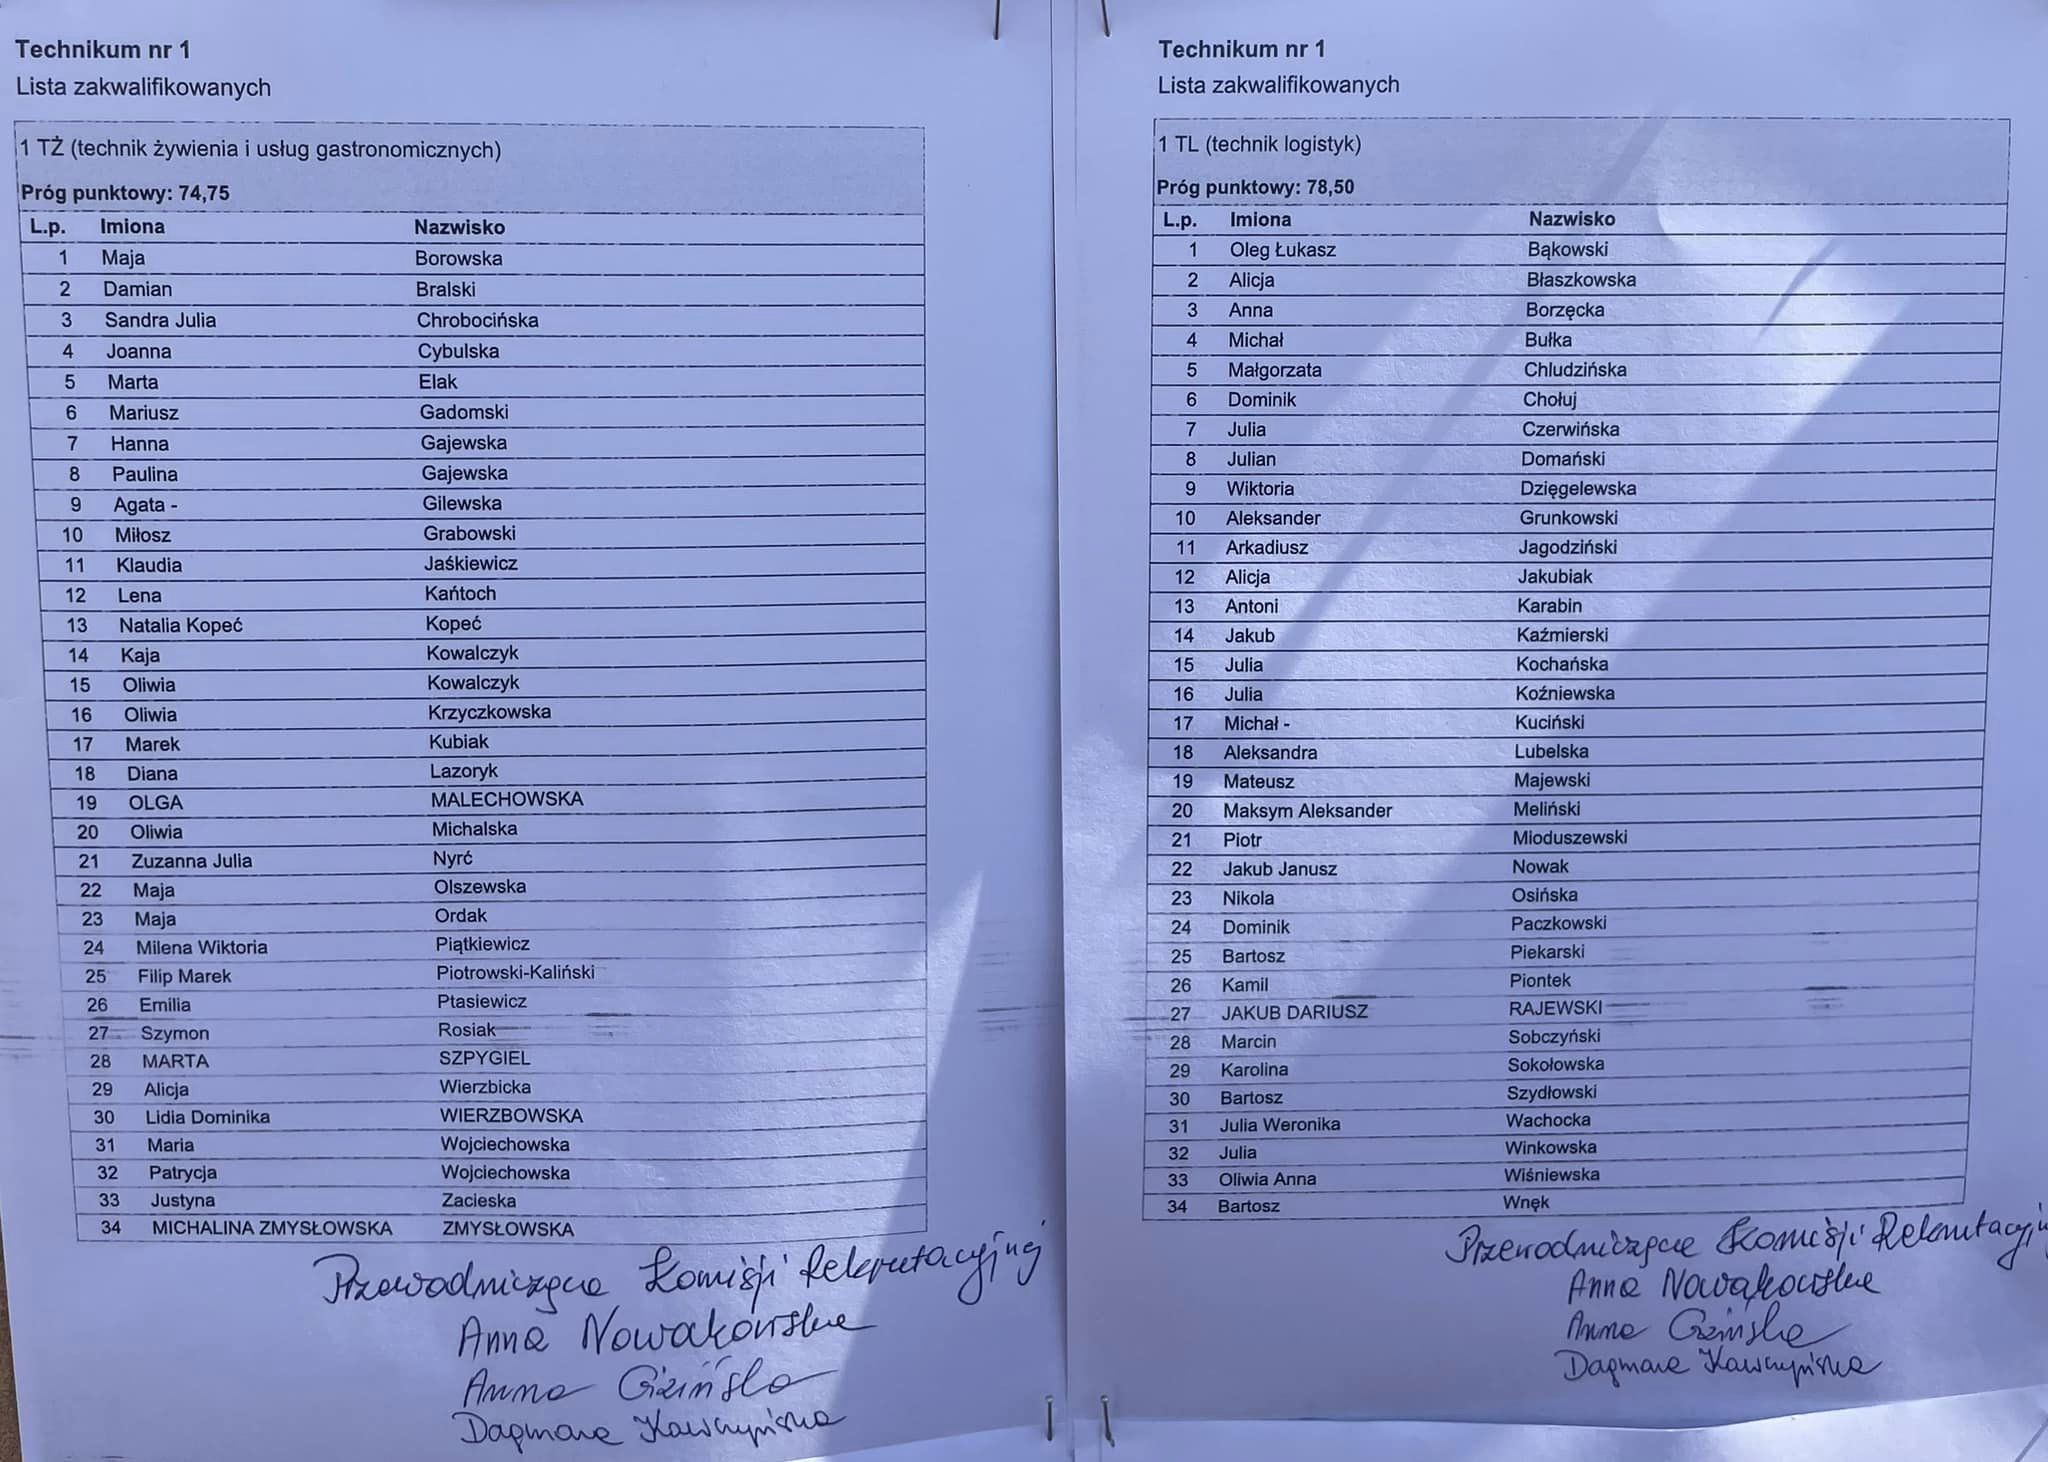 Technikum nr 1
Lista zakwalifikowanych
1 TŻ (technik żywienia i usług gastronomicznych)
Próg punktowy: 74,75
L.p. Imiona Nazwisko
1 Maja Borowska
2 Damian Bralski
3 Sandra Julia Chrobocińska
4 Joanna Cybulska
5 Marta Elak
6 Mariusz Gadomski
7 Hanna Gajewska
8 Paulina Gajewska
9 Agata - Gilewska
10 Miłosz Grabowski
11 Klaudia Jaśkiewicz
12 Lena Kańtoch
13 Natalia Kopeć Kopeć
14 Kaja Kowalczyk
15 Oliwia Kowalczyk
16 Oliwia Krzyczkowska
17 Marek Kubiak
18 Diana Lazoryk
19 OLGA MALECHOWSKA
20 Oliwia Michalska
21 Zuzanna Julia Nyrć
22 Maja Olszewska
23 Maja Ordak
24 Milena Wiktoria Piątkiewicz
25 Filip Marek Piotrowski-Kaliński
26 Emilia Ptasiewicz
27 Szymon Rosiak
28 MARTA SZPYGIEL
29 Alicja Wierzbicka
30 Lidia Dominika WIERZBOWSKA
31 Maria Wojciechowska
32 Patrycja Wojciechowska
33 Justyna Zacieska
34 MICHALINA ZMYSŁOWSKA ZMYSŁOWSKA
Przewodniczące Komisji Rekrutacyjnej
Anna Nowakowska
Anna Gzińska
Dagmara Kawczyńska
Technikum nr 1
Lista zakwalifikowanych
1 TL (technik logistyk)
Próg punktowy: 78,50
L.p. Imiona Nazwisko
1 Oleg Łukasz Bąkowski
2 Alicja Błaszkowska
3 Anna Borzęcka
4 Michał Bułka
5 Małgorzata Chludzińska
6 Dominik Chołuj
7 Julia Czerwińska
8 Julian Domański
9 Wiktoria Dzięgelewska
10 Aleksander Grunkowski
11 Arkadiusz Jagodziński
12 Alicja Jakubiak
13 Antoni Karabin
14 Jakub Kaźmierski
15 Julia Kochańska
16 Julia Koźniewska
17 Michał - Kuciński
18 Aleksandra Lubelska
19 Mateusz Majewski
20 Maksym Aleksander Meliński
21 Piotr Mioduszewski
22 Jakub Janusz Nowak
23 Nikola Osińska
24 Dominik Paczkowski
25 Bartosz Piekarski
26 Kamil Piontek
27 JAKUB DARIUSZ RAJEWSKI
28 Marcin Sobczyński
29 Karolina Sokołowska
30 Bartosz Szydłowski
31 Julia Weronika Wachocka
32 Julia Winkowska
33 Oliwia Anna Wiśniewska
34 Bartosz Wnęk
Przewodniczące Komisji
Anna Nowakowska
Anna Gzińska
Dagmara Kawczyńska